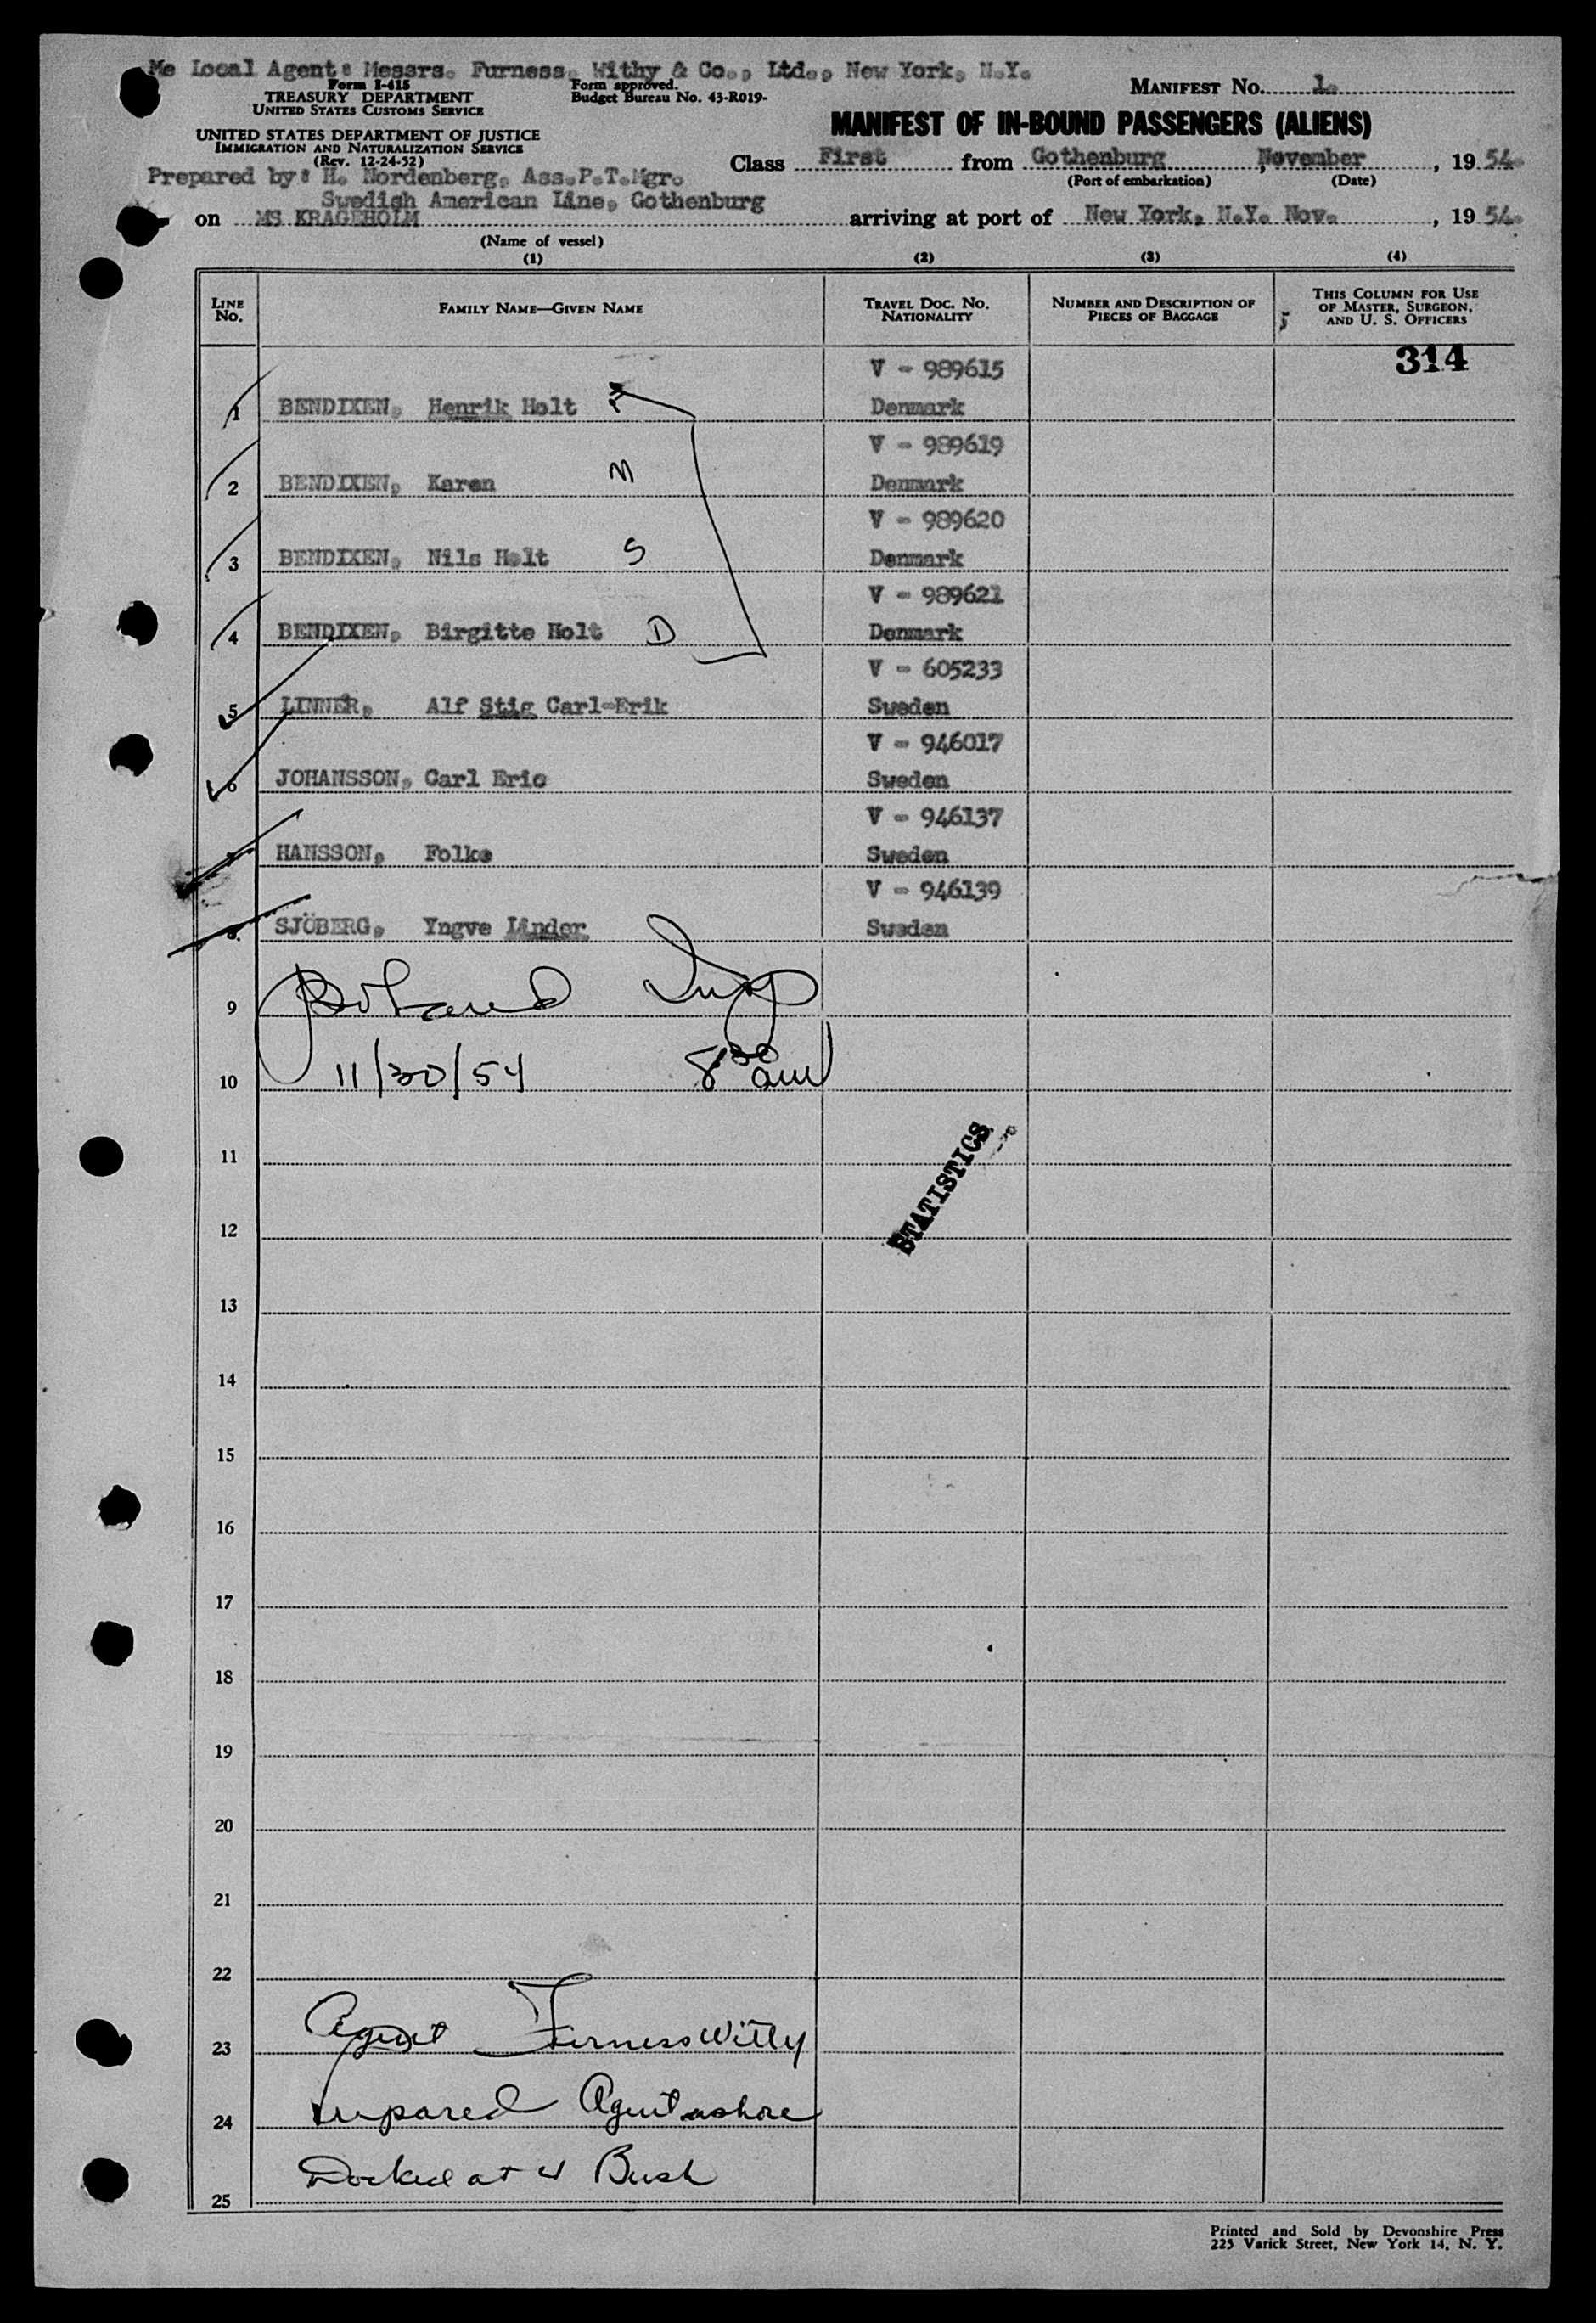 Me Local Agent: Messrs. Furness, Withy & Co., Ltd., New York, N.Y.
Form I-415
TREASURY DEPARTMENT
UNITED STATES CUSTOMS SERVICE
Form approved.
Budget Bureau No. 43-R019-
MANIFEST NO. 1.
UNITED STATES DEPARTMENT OF JUSTICE
IMMIGRATION AND NATURALIZATION SERVICE
(Rev. 12-24-52)
MANIFEST OF IN-BOUND PASSENGERS (ALIENS)
Prepared by: H. Nordenberg, Ass.P.T.Mgr.
Swedish American Line, Gothenburg
Class First from Gothenburg, November, 1954.
(Port of embarkation) (Date)
on MS KRAGEHOLM arriving at port of New York, N.Y. Nov., 1954.
(Name of vessel)
(1) (2) (3) (4)
LINE NO.
FAMILY NAME—GIVEN NAME
TRAVEL DOC. NO. NATIONALITY
NUMBER AND DESCRIPTION OF PIECES OF BAGGAGE
THIS COLUMN FOR USE OF MASTER, SURGEON, AND U. S. OFFICERS
314
V - 989615
1 BENDIXEN, Henrik Holt Denmark
V - 989619
2 BENDIXEN, Karen M Denmark
V - 989620
3 BENDIXEN, Nils Holt S Denmark
V - 989621
4 BENDIXEN, Birgitte Holt D Denmark
V - 605233
5 LINNÉR, Alf Stig Carl-Erik Sweden
V - 946017
6 JOHANSSON, Carl Eric Sweden
V - 946137
7 HANSSON, Folke Sweden
V - 946139
8. SJÖBERG, Yngve Lindor Sweden
9
10 11/30/54 8 30 am
11
STATISTICS
12
13
14
15
16
17
18
19
20
21
22
23 Agent Furness Withy
24 prepared Agent ashore
25 Docked at 4 Bush
Printed and Sold by Devonshire Press
225 Varick Street, New York 14, N. Y.